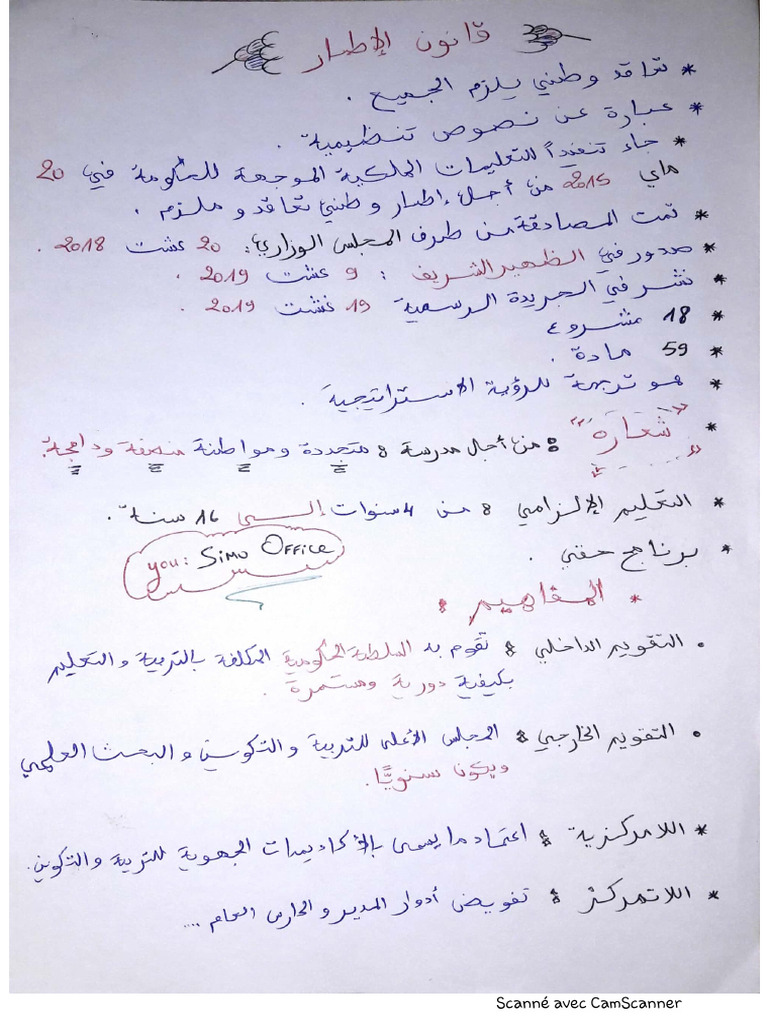 قانون الإطار
* تعاقد وطني يلزم الجميع .
* عبارة عن نصوص تنظيمية .
* جاء تنفيذاً للتعليمات الملكية الموجهة للحكومة في 20
ماي 2015 من أجل إطار وطني تعاقد و ملزم .
* تمت المصادقة من طرف المجلس الوزاري: 20 غشت 2018 .
* صدور في الظهير الشريف : 9 غشت 2019 .
* نشر في الجريدة الرسمية 19 غشت 2019 .
* 18 مشروع
* 59 مادة .
* هو ترجمة للرؤية الاستراتيجية .
* "شعاره" : من أجل مدرسة : متجددة ومواطنة منصفة ودامجة.
* التعليم الإلزامي : من 4 سنوات إلى 16 سنة .
* برنامج حقي .
you: SIMO OFFICE
* المفاهيم :
• التقويم الداخلي : تقوم به السلطة الحكومية المكلفة بالتربية والتعليم
بكيفية دورية ومستمرة .
• التقويم الخارجي : المجلس الأعلى للتربية والتكوين و البحث العلمي
ويكون سنويًّا .
* اللامركزية : اعتماد ما يسمى بالأكاديميات الجهوية للتربية والتكوين .
* اللاتمركز : تفويض أدوار المدير والحارس العام ....
Scanné avec CamScanner